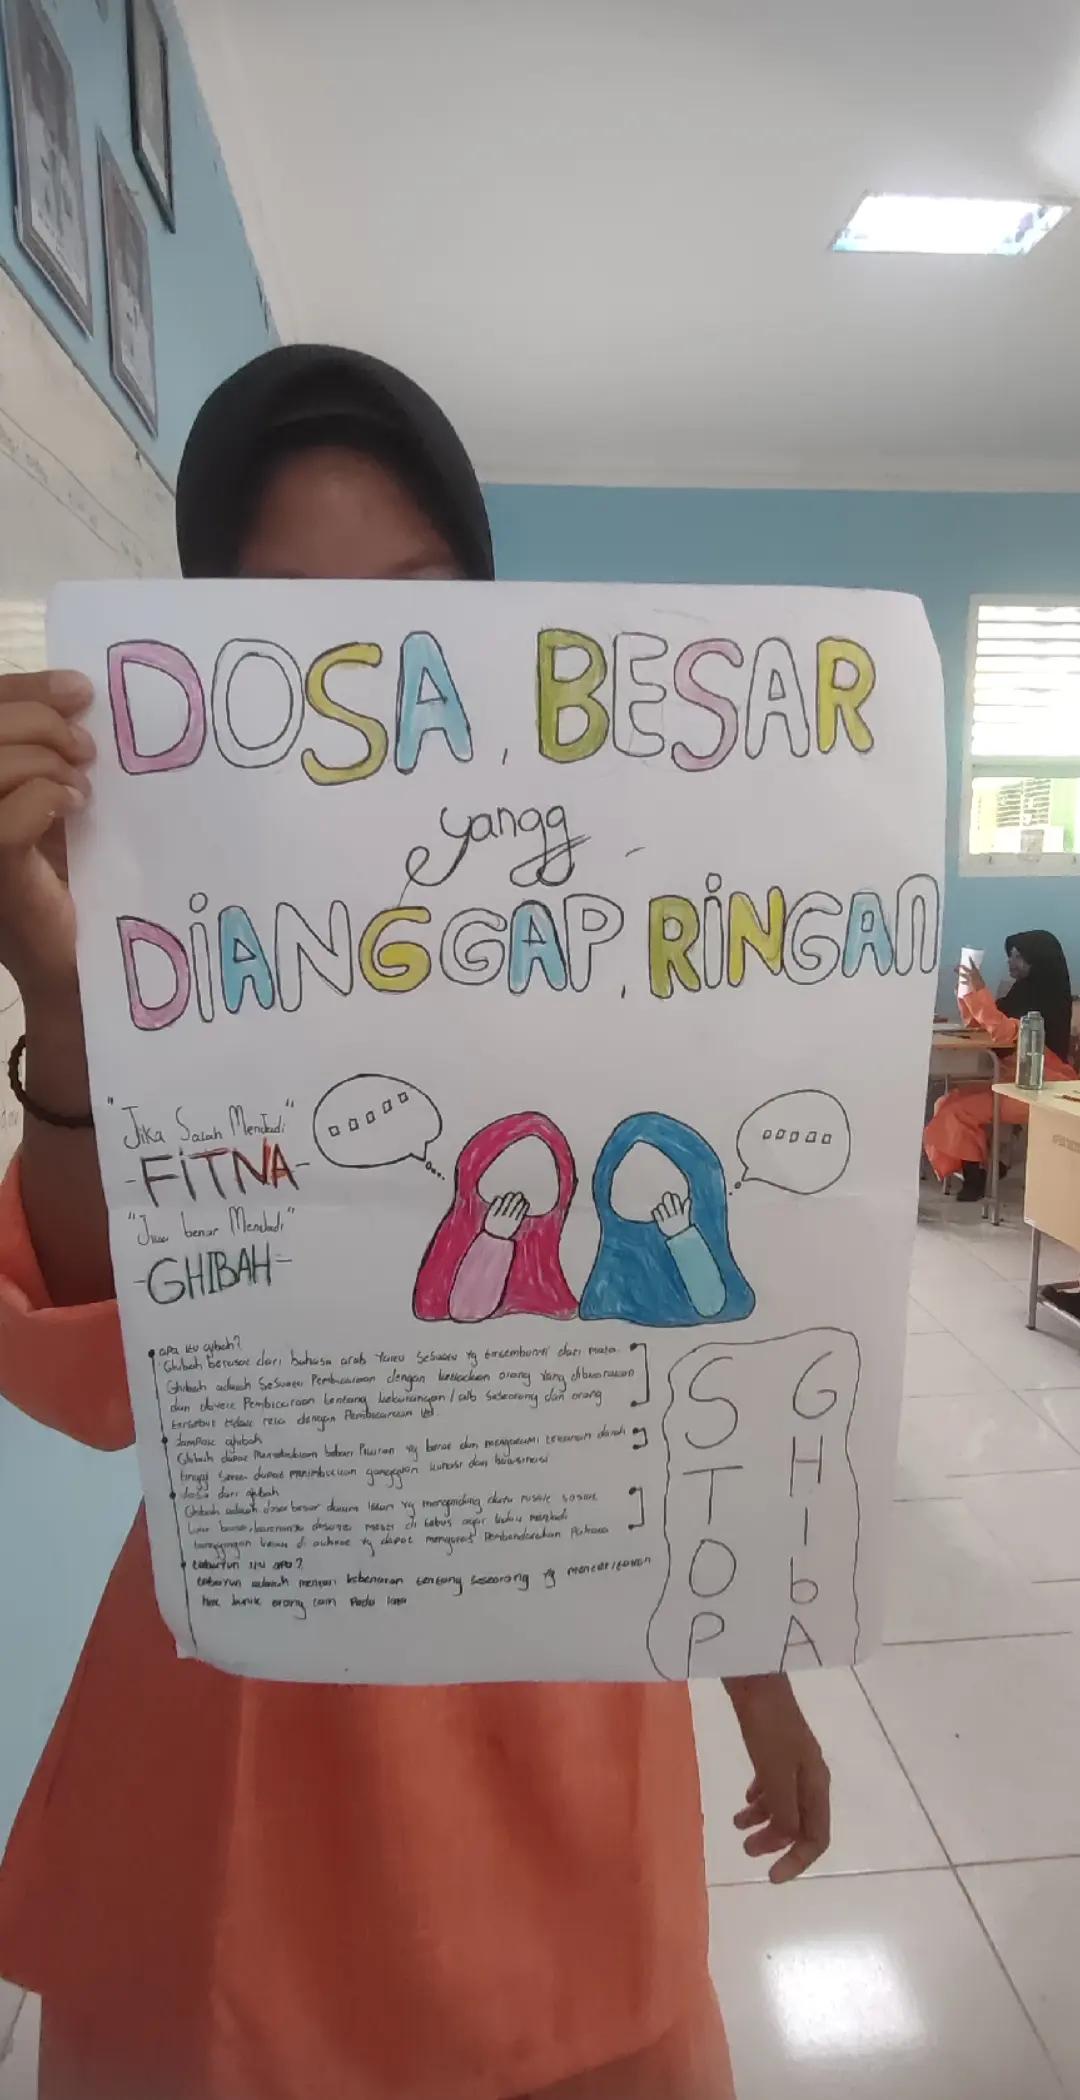 DOSA, BESAR
yangg
DIANGGAP, RINGAN
"Jika Salah Menjadi"
-FITNA-
"Jika benar Menjadi"
-GHIBAH-
apa itu ghibah?
Ghibah berasal dari bahasa arab yaitu Sesuatu yg tersembunyi dari mata
Ghibah adalah Sesuatu Pembicaraan dengan ketiadaan orang yang dibicarakan
dan obyek Pembicaraan tentang kekurangan / aib Seseorang dan orang
tersebut tidak rela dengan Pembicaraan
dampak ghibah
Ghibah dapat beban Pikiran yg berat dan mengalami tekanan darah
tinggi Serta dapat menimbulkan gangguan dan halusinasi
dosa dari ghibah
Ghibah adalah dosa besar dalam Islam yg
dapat
itu apa?
adalah mencari kebenaran tentang seseorang yg
hak milik orang lain Pada
STOP
GHIbA